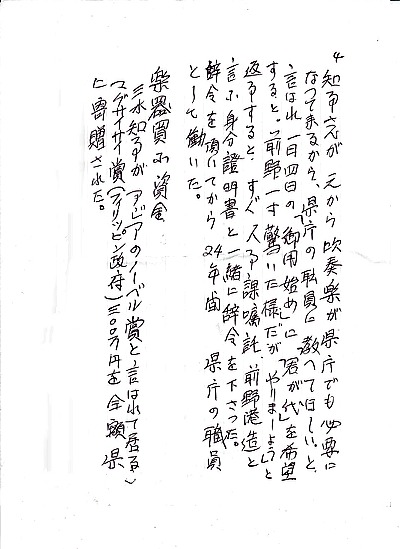 4
知事さんが、元から吹奏楽が県庁でも必要に
なって来るから、県庁の職員に教へてほしい、と
言はれ一月四日の「御用始め」に「君が代」を希望
すると。」前野一寸驚いた様だが「やりましょう」と
返事すると、すぐ人事課嘱託、前野港造と
言ふ身分證明書と一緒に辞令を下さった。
辞令を頂いてから24年間 県庁の職員
として働いた。
楽器買ふ資金
三木知事が(アジアのノーベル賞と言はれて居る)
マグサイサイ賞(フィリッピン政府)三〇〇万円を全額県
に寄贈された。